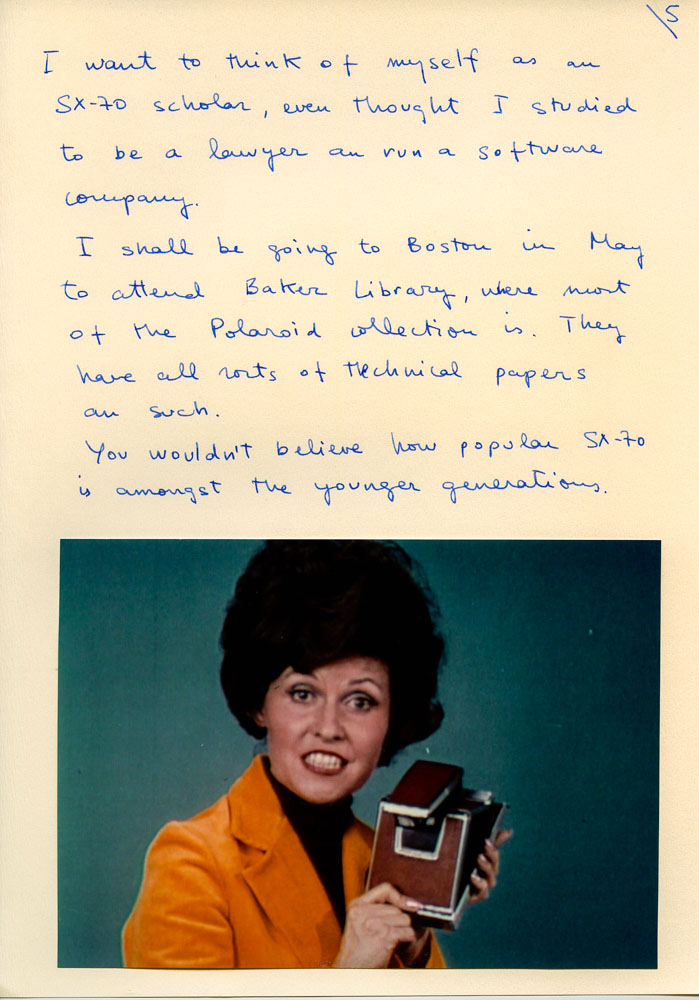 \5
I want to think of myself as an
SX-70 scholar, even thought I studied
to be a lawyer an run a software
company.
I shall be going to Boston in May
to attend Baker Library, where most
of the Polaroid collection is. They
have all sorts of technical papers
an such.
You wouldn't believe how popular SX-70
is amongst the younger generations.